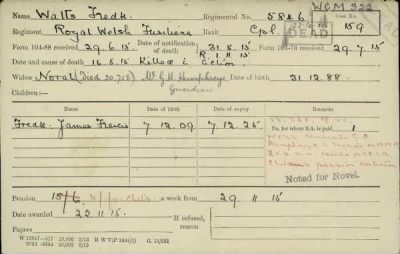 WGM 322
Name Watts Fredk. Regimental No. 5846 Case No.
Regiment Royal Welsh Fusiliers Rank Cpl. DEAD 159
Form 104-88 received 29.6.15 Date of notification of death 31.8.15 Form 104-76 received 29.7.15
Date and cause of death 16.5.15 Killed in Action
Widow Norah (Died 20.7.15) Mr G H Humphreys Date of birth 31.12.88.
Guardian
Children:—
Name Date of birth Date of expiry
Fredk: James Francis 7.12.09 7.12.25
No. for whom S.A. is paid 1
Noted for Novel.
Pension 15/6 a week from 29.11.15
Date awarded 22.11.15. If refused, reason
Papers